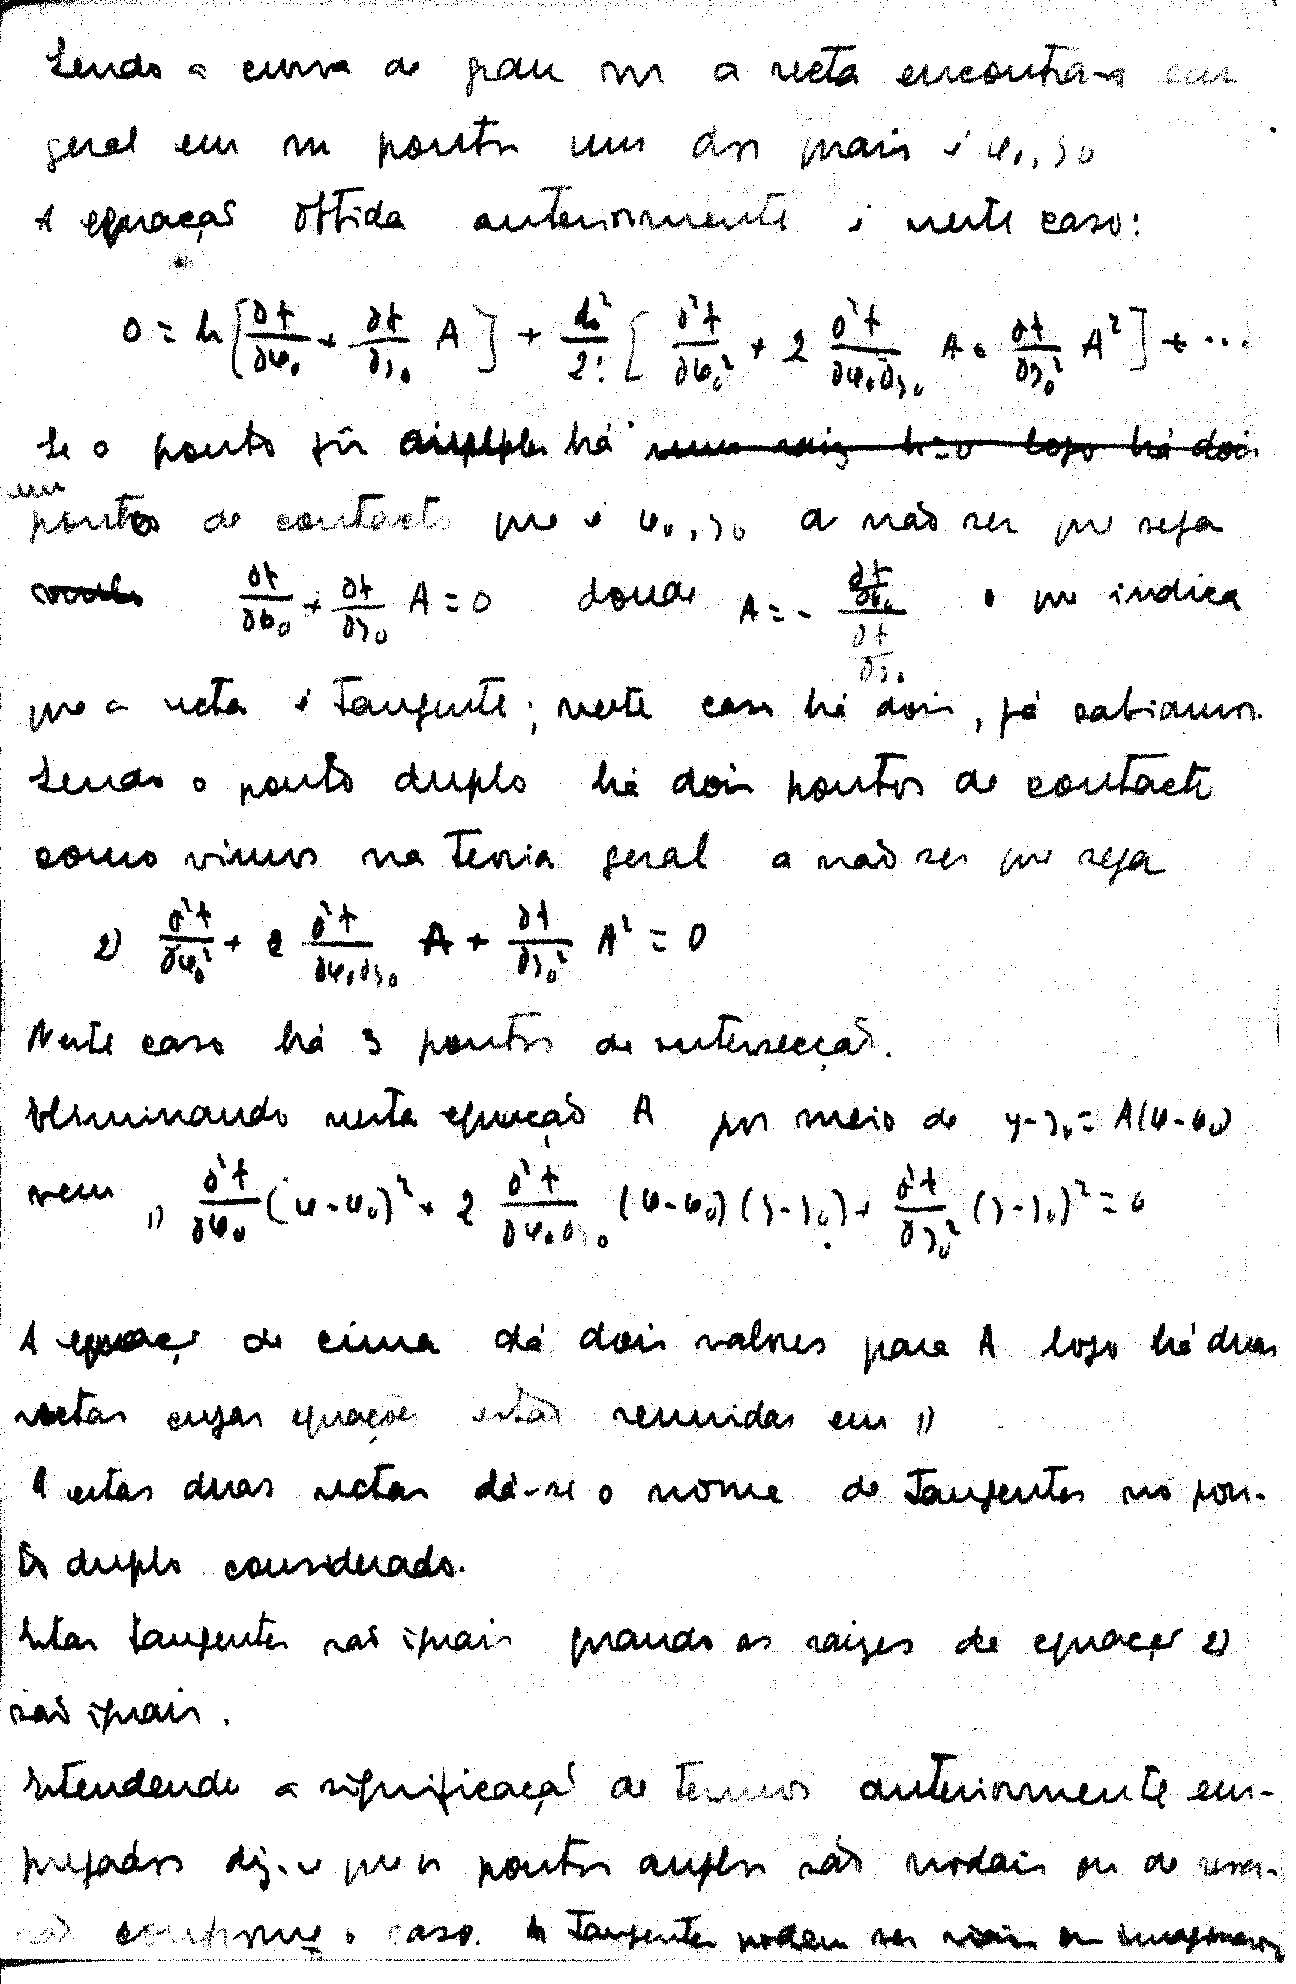 Sendo a curva de grau m a recta encontra-a em
geral em m pontos um dos quais é x₀, y₀
A equação obtida anteriormente é neste caso:
0 = h [∂f/∂x₀ + ∂f/∂y₀ A] + h²/2! [∂²f/∂x₀² + 2 ∂²f/∂x₀∂y₀ A + ∂f/∂y₀² A²] + ...
Se o ponto fôr simples há uma raiz h=0 logo há dois
um
ponto de contacto que é x₀, y₀ a não ser que seja
∂f/∂x₀ + ∂f/∂y₀ A = 0 donde A = - ∂f/∂x₀ / ∂f/∂y₀ o que indica
que a recta é tangente; neste caso há dois, já sabiamos.
Sendo o ponto duplo há dois pontos de contacto
como vimos na teoria geral a não ser que seja
2) ∂²f/∂x₀² + 2 ∂²f/∂x₀∂y₀ A + ∂f/∂y₀² A² = 0
Neste caso há 3 pontos de intersecção.
Eliminando nesta equação A por meio de y-y₀ = A(x-x₀)
vem 1) ∂²f/∂x₀ (x-x₀)² + 2 ∂²f/∂x₀∂y₀ (x-x₀)(y-y₀) + ∂²f/∂y₀² (y-y₀)² = 0
A equaç. de cima dá dois valores para A logo há duas
rectas cujas equações estão reunidas em 1)
A estas duas rectas dá-se o nome de tangentes no pon-
to duplo considerado.
Estas tangentes são iguais quando as raizes de equaçã 2)
são iguais.
Estendendo a significação de termos anteriormente em-
pregados diz-se que os pontos duplos são nodais ou de rever-
são conforme o caso. As tangentes podem ser reais ou imaginarias